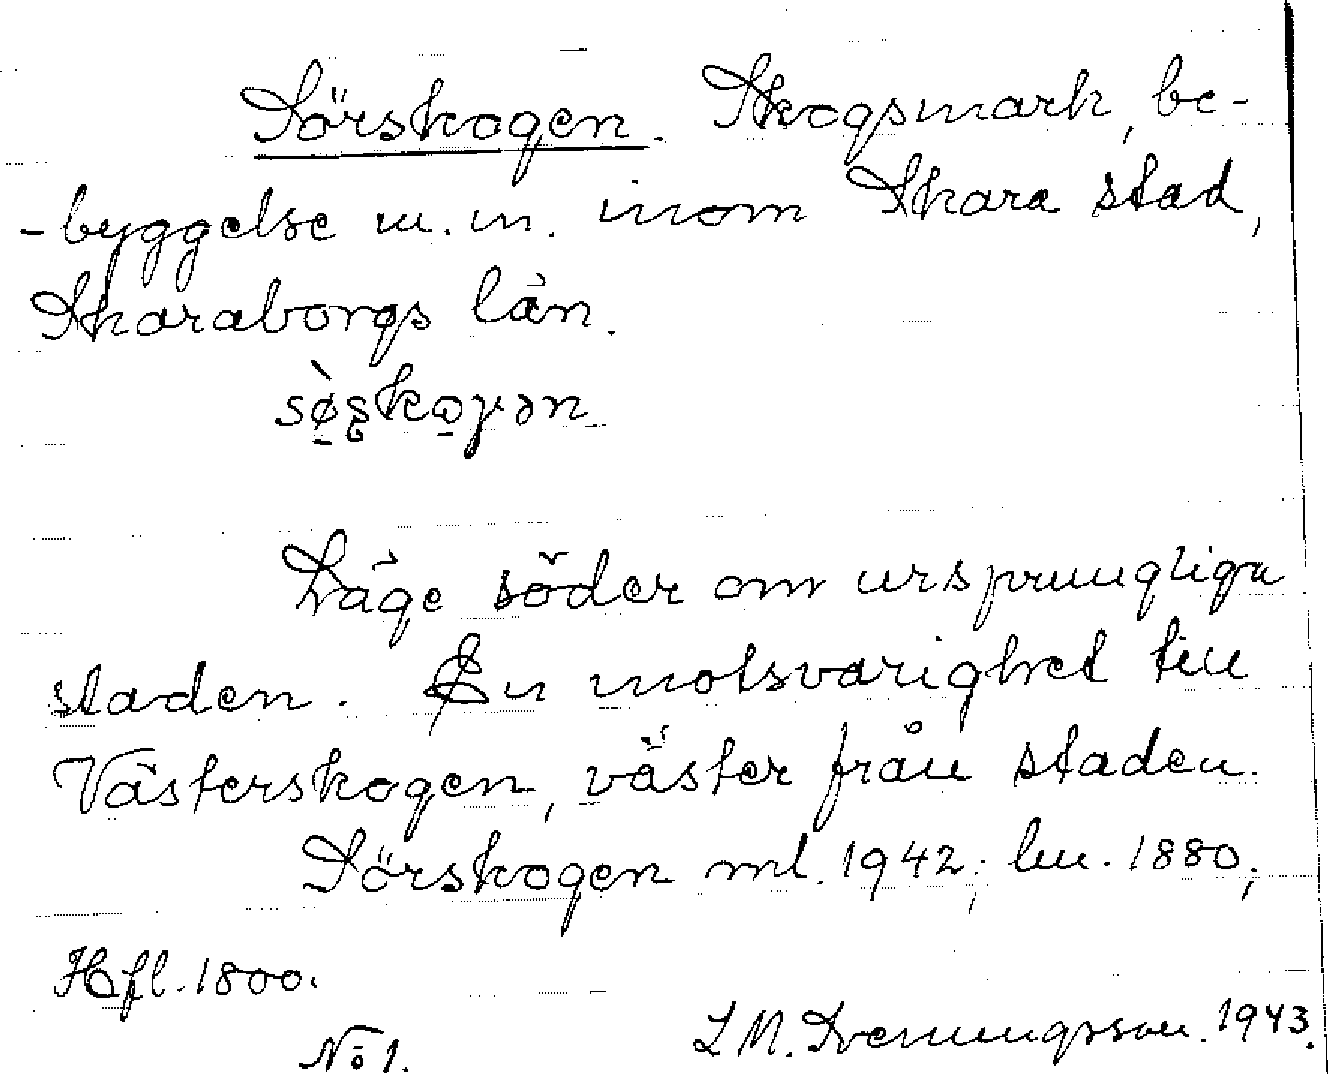 Sörskogen. Skogsmark, be-
-byggelse m.m. inom Skara stad,
Skaraborgs län.
sø̀ʂkoɣən
Läge söder om ursprungliga
staden. En motsvarighet till
Västerskogen, väster från staden.
Sörskogen ml. 1942; hm. 1880;
Hfl. 1800.
No 1. L M. Svenungsson. 1943.